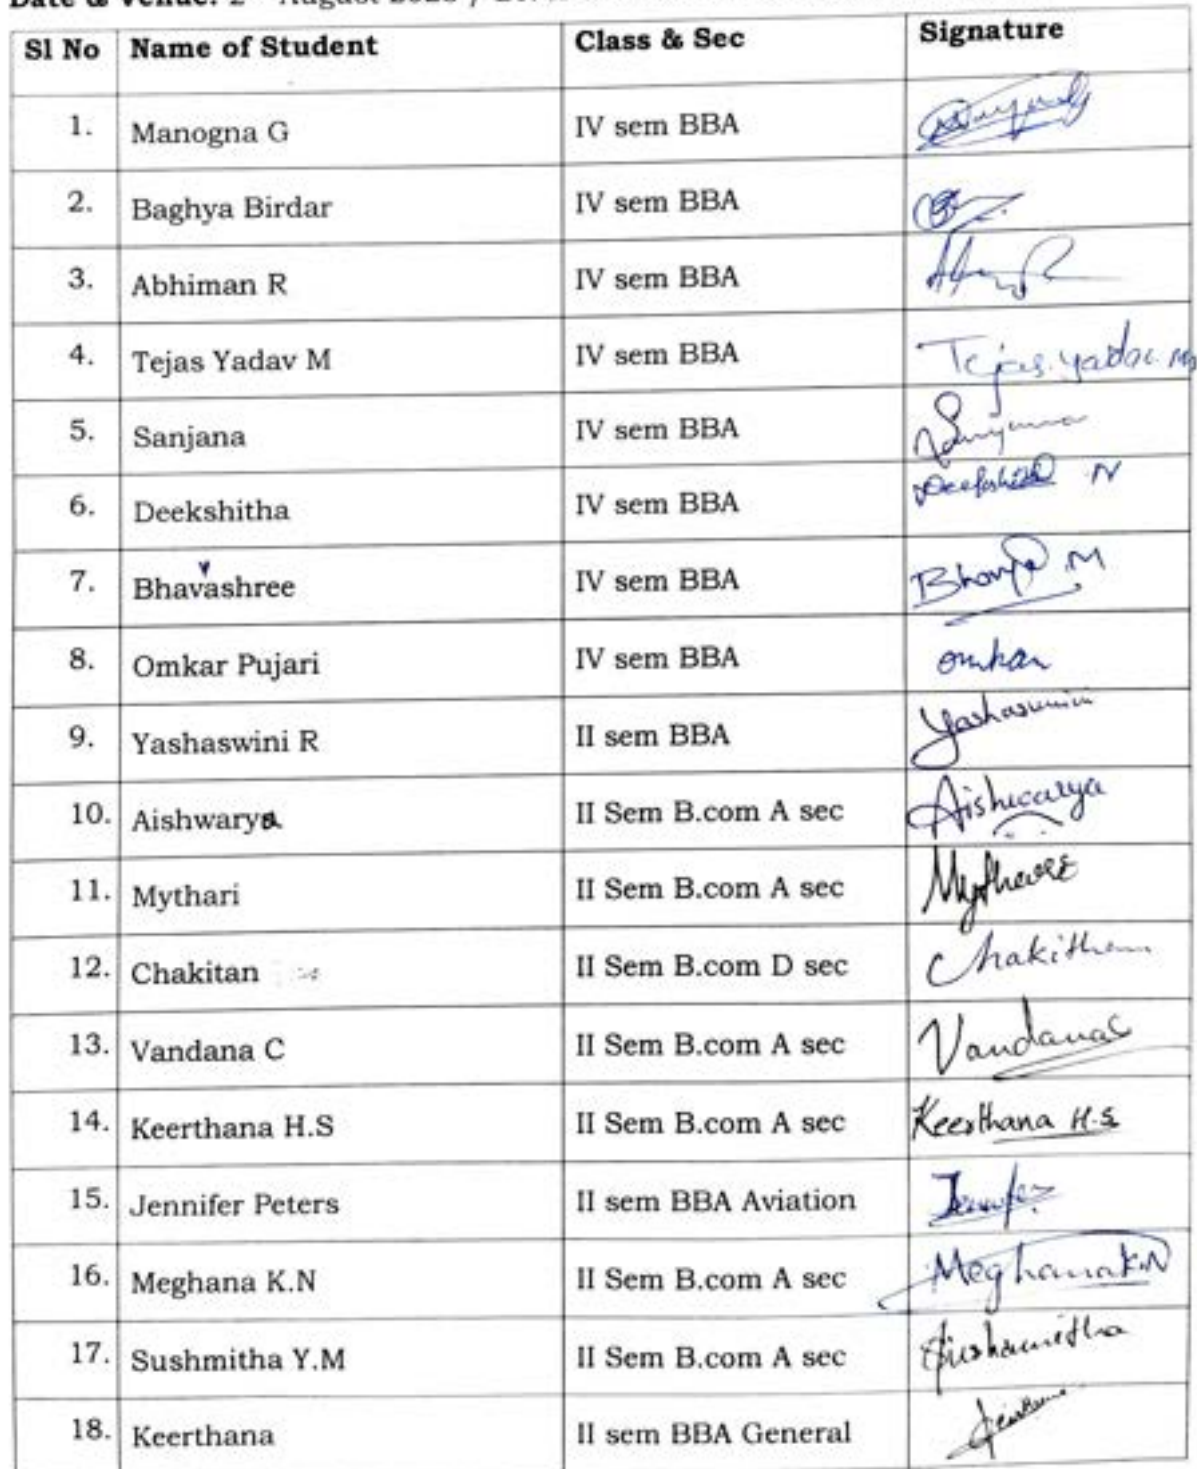 Date & Venue: 2 August 2023 /
Sl No Name of Student Class & Sec Signature
1. Manogna G IV sem BBA
2. Baghya Birdar IV sem BBA
3. Abhiman R IV sem BBA
4. Tejas Yadav M IV sem BBA Tejas.yadav.M
5. Sanjana IV sem BBA Sanjana
6. Deekshitha IV sem BBA Deekshitha N
7. Bhavashree IV sem BBA
8. Omkar Pujari IV sem BBA omkar
9. Yashaswini R II sem BBA Yashaswini
10. Aishwarya II Sem B.com A sec Aishwarya
11. Mythari II Sem B.com A sec
12. Chakitan II Sem B.com D sec
13. Vandana C II Sem B.com A sec Vandana C
14. Keerthana H.S II Sem B.com A sec Keerthana H.S
15. Jennifer Peters II sem BBA Aviation Jennifer
16. Meghana K.N II Sem B.com A sec Meghana K.N
17. Sushmitha Y.M II Sem B.com A sec
18. Keerthana II sem BBA General